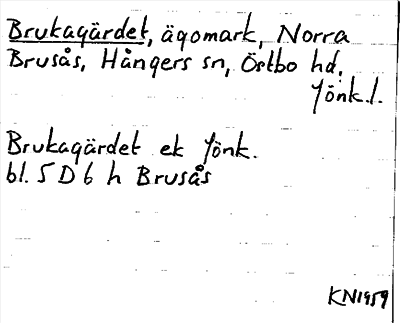 Brukagärdet, ägomark, Norra
Brusås, Hångers sn, Östbo hd,
Jönk.l.
Brukagärdet ek Jönk.
bl. 5 D 6 h Brusås
KN1959